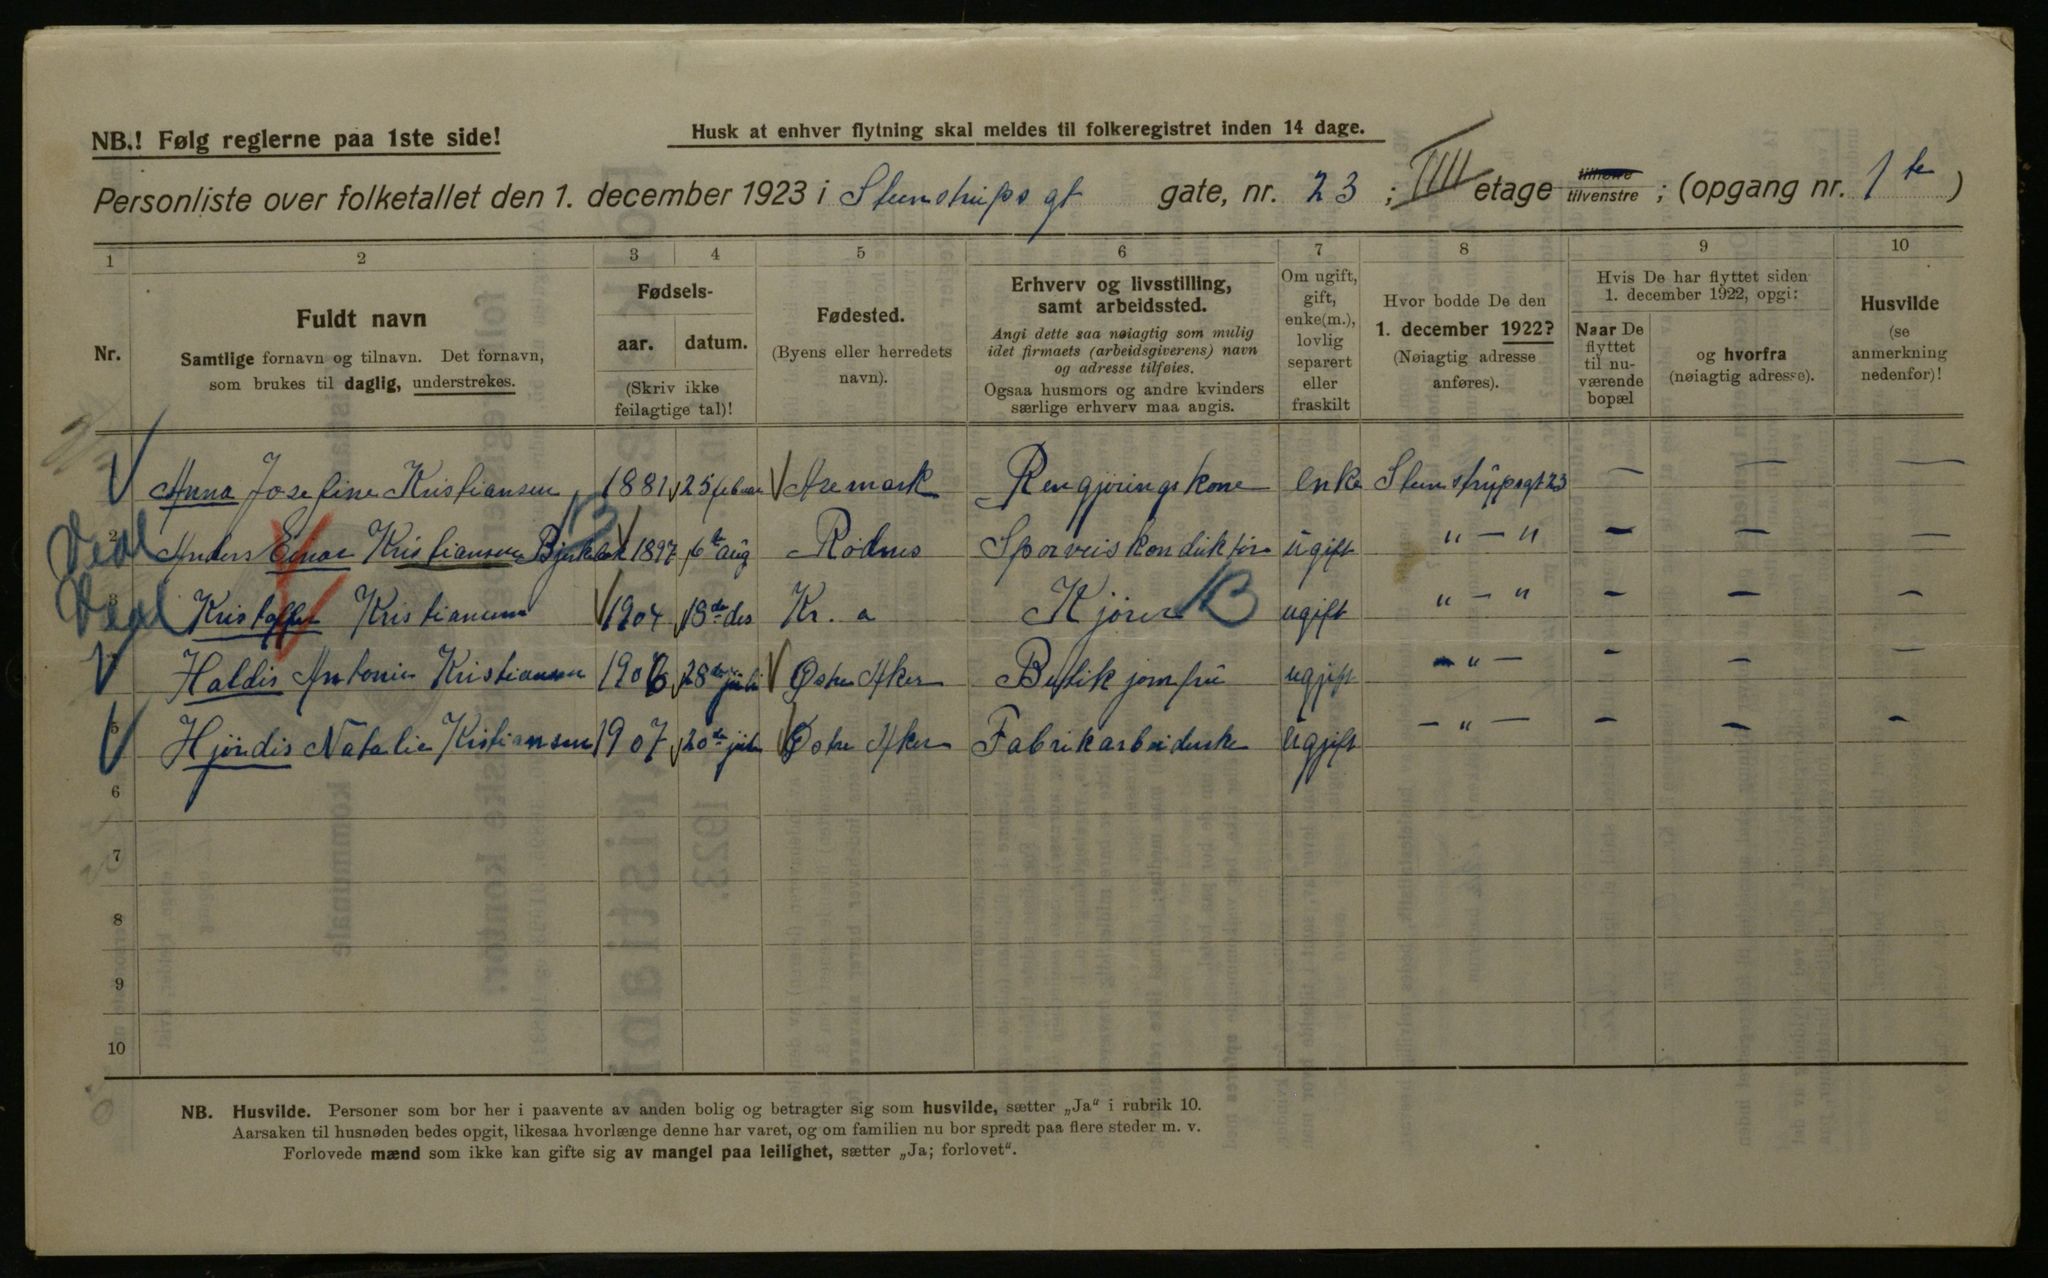 NB.! Følg reglerne paa 1ste side!
Husk at enhver flytning skal meldes til folkeregistret inden 14 dage.
Personliste over folketallet den 1. december 1923 i Stenstrups gt gate, nr. 23 ; IIII etage tilhøire tilvenstre ; (opgang nr. 1 te )
1 2 3 4 5 6 7 8 9 10
Nr.
Fuldt navn
Samtlige fornavn og tilnavn. Det fornavn,
som brukes til daglig, understrekes.
Fødsels-
aar. datum.
(Skriv ikke
feilagtige tal)!
Fødested.
(Byens eller herredets
navn).
Erhverv og livsstilling,
samt arbeidssted.
Angi dette saa nøiagtig som mulig
idet firmaets (arbeidsgiverens) navn
og adresse tilføies.
Ogsaa husmors og andre kvinders
særlige erhverv maa angis.
Om ugift,
gift,
enke(m.),
lovlig
separert
eller
fraskilt
Hvor bodde De den
1. december 1922?
(Nøiagtig adresse
anføres).
Hvis De har flyttet siden
1. december 1922, opgi:
Naar De
flyttet
til nu-
værende
bopæl
og hvorfra
(nøiagtig adresse).
Husvilde
(se
anmerkning
nedenfor)!
Anna Josefine Kristiansen 1881 25 februar Aremark Rengjøringskone enke Stenstrupsgt 23 — — —
2 Anders Einar Kristiansen 1897 6te aug Rødnes Sporveiskonduktør ugift " — " — — —
3 Kristoffer Kristiansen 1904 18de des Kr. a Kjører B ugift " — " — — —
Haldis Antonie Kristiansen 1906 28de juli Østre Aker Butikjomfru ugift " — — — —
5 Hjørdis Natalie Kristiansen 1907 20de Østre Aker Fabrikarbeiderske ugjift — " — — — —
6
7
8
9
10
NB. Husvilde. Personer som bor her i paavente av anden bolig og betragter sig som husvilde, sætter „Ja" i rubrik 10.
Aarsaken til husnøden bedes opgit, likesaa hvorlænge denne har varet, og om familien nu bor spredt paa flere steder m. v.
Forlovede mænd som ikke kan gifte sig av mangel paa leilighet, sætter „Ja; forlovet".